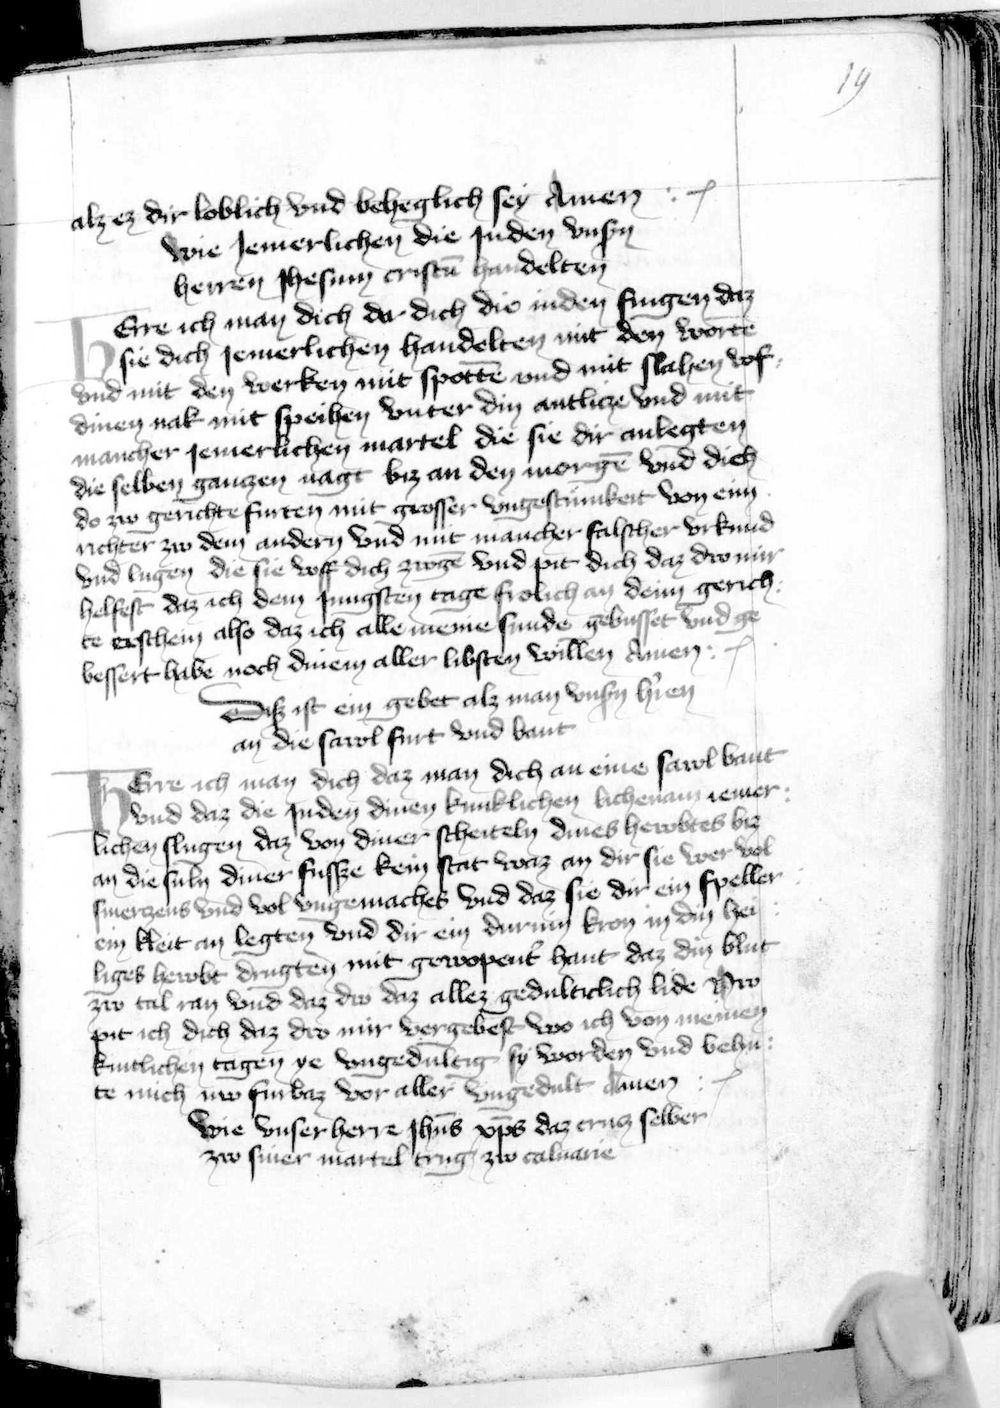 19
alz ez dir loblich vnd beheglich sey Amen :
wie Jemerlichen die Juden vnsn̄
herren Jhesum cristū handelten
HErre ich man dich da dich die iuden fingen daz
sie dich Jemerlichen handelten mit den worte
vnd mit den werken mit spottē vnd mit slahen vof
dinen nak mit speihen vnter din antlicze vnd mit
mancher Jemerlichen martel die sie dir anlegten
die selben ganczen nagt biz an den morgē vnd dich
do zwo gerichte furten mit grosser vngestumkeit von eim
richter zwo dem andern vnd mit mancher falscher vrkund
vnd lugen die sie voff dich zwogē vnd pit dich daz dwo mir
helfest daz ich dem Jungsten tage frolich an deim gerich:
te erschein also daz ich alle meine sunde gebusset vnd ge
bessert habe noch dinem aller libsten willen Amen :
Diz ist ein gebet alz man vnsn̄ hr̄en
an die sawl furt vnd bant
HErre ich man dich daz man dich an eine sawl bant
vnd daz die Juden dinen kunklichen lichenam iemer:
lichen slugen daz von diner scheiteln dines hewbtes biz
an die suln diner fussze kein stat waz an dir sie wer vol
smerczens vnd vol vngemaches vnd daz sie dir ein speller
ein kleit an legten vnd dir ein durnin kron in din hei:
liges hewbt drugten mit gewopent̄ hant daz din blut
zwo tal ran vnd daz dwo daz allez gedulticlich lide Nwo
pit ich dich daz dwo mir vergebest wo ich von meinen
kintlichen tagen ye vngedultig sy worden vnd behu:
te mich nwo furbaz vor aller vngedult Amen :
Wie vnser herre Jhūs xp̄s daz crucz selber
zwo siner martel trug zwo caluarie